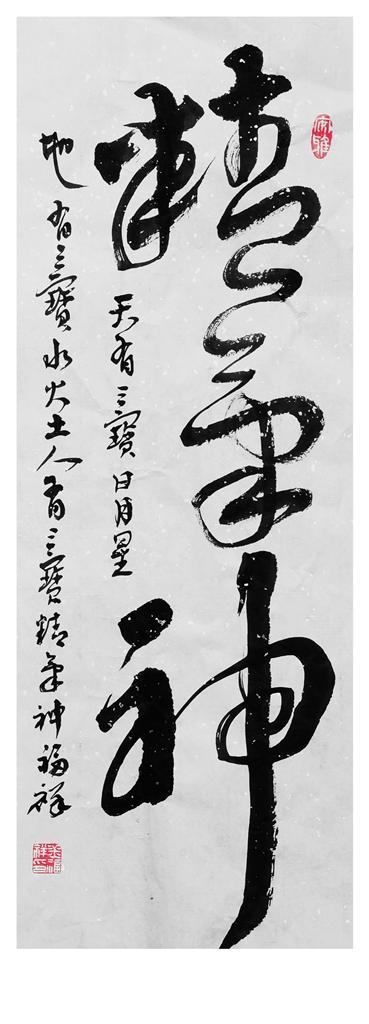 精氣神
天有三寶日月星
地有三寶水火土人有三寶精氣神福祥